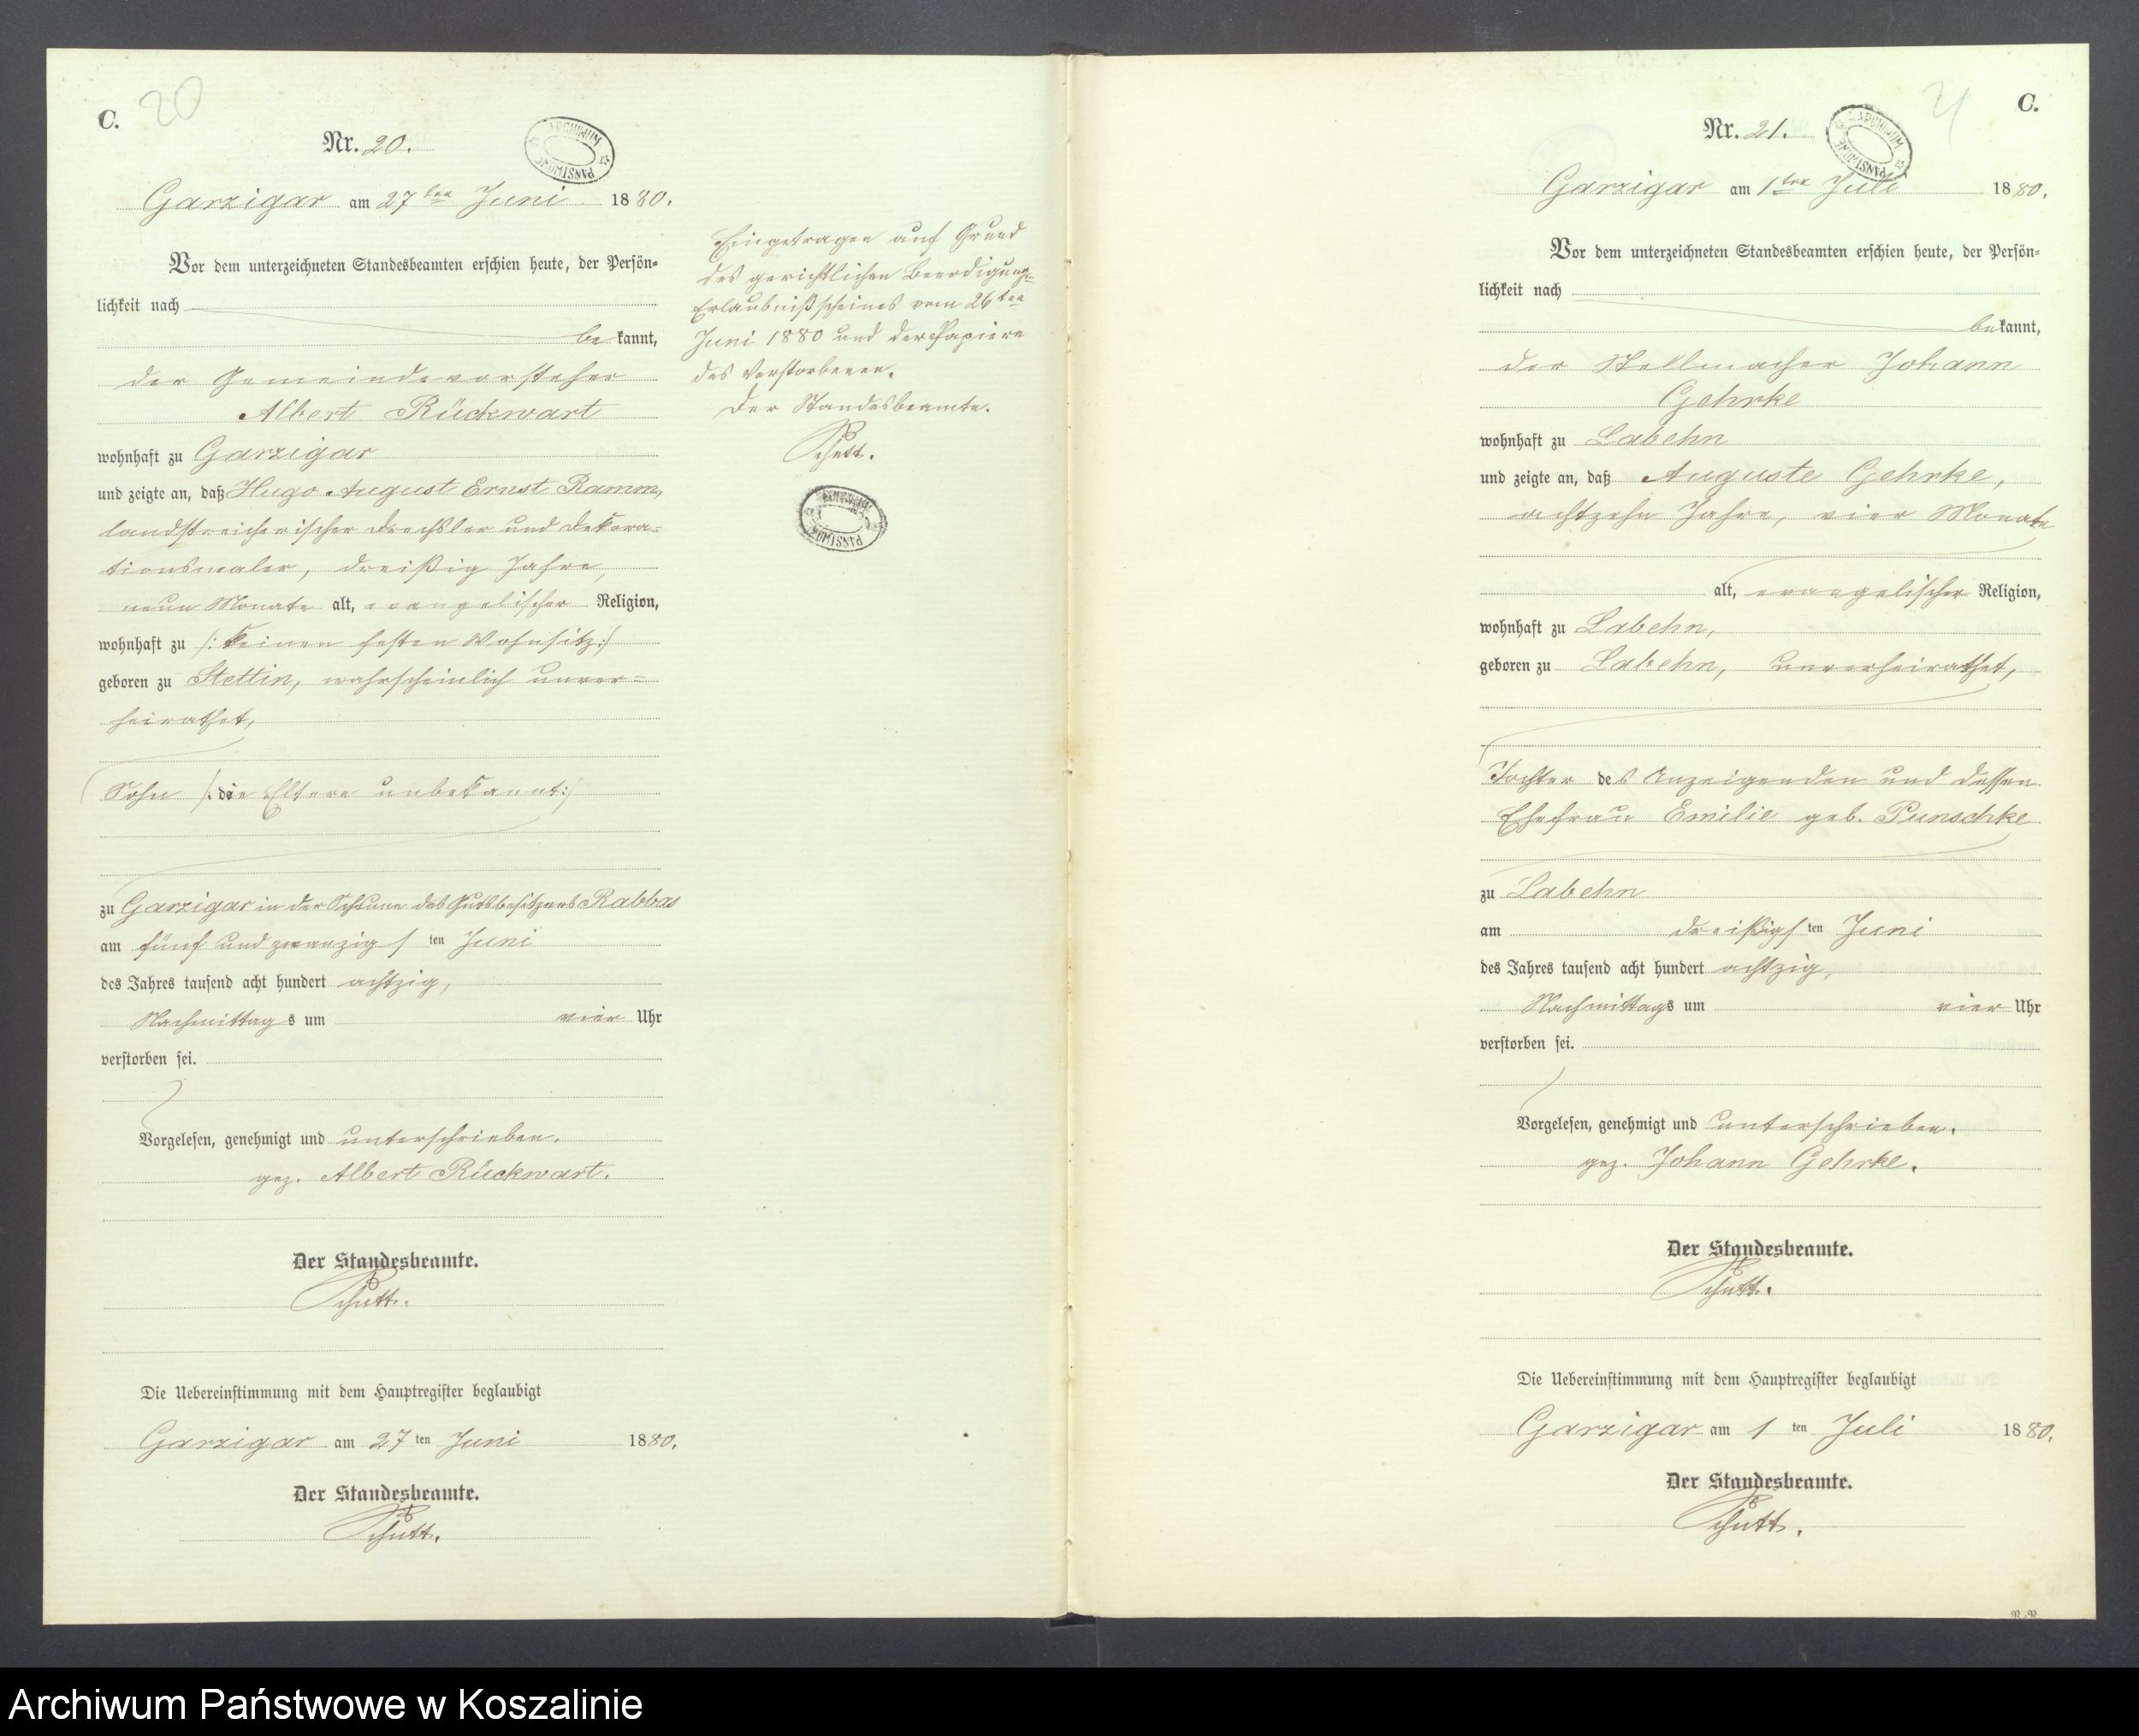 C.
20
Nr. 20.
ARCHIWUM PAŃSTWOWE
Garzigar am 27ten Juni 1880.
Vor dem unterzeichneten Standesbeamten erschien heute, der Persön-
lichkeit nach
bekannt,
der Gemeindevorsteher
Albert Rückwart
wohnhaft zu Garzigar
und zeigte an, daß Hugo August Ernst Ramm,
landstreicherischer Drechsler und Dekora-
tionsmaler, dreißig Jahre,
neun Monate alt, evangelischer Religion,
wohnhaft zu /: keinen festen Wohnsitz :/
geboren zu Stettin, wahrscheinlich unver-
heirathet,
Sohn /: die Eltern unbekannt :/
zu Garzigar in der Scheune des Gutsbesitzers Rabbas
am fünf und zwanzigsten Juni
des Jahres tausend acht hundert achtzig,
Nachmittags um vier Uhr
verstorben sei.
Vorgelesen, genehmigt und unterschrieben.
gez. Albert Rückwart.
Der Standesbeamte.
Schutt.
Die Uebereinstimmung mit dem Hauptregister beglaubigt
Garzigar am 27 ten Juni 1880.
Der Standesbeamte.
Schutt.
Eingetragen auf Grund
des gerichtlichen Beerdigungs-
Erlaubnißscheines vom 26ten
Juni 1880 und der Papiere
des Verstorbenen.
Der Standesbeamte.
Schutt.
PAŃSTWOWE
C.
21
Nr. 21.
ARCHIWUM PAŃSTWOWE
Garzigar am 1ten Juli 1880.
Vor dem unterzeichneten Standesbeamten erschien heute, der Persön-
lichkeit nach
bekannt,
der Stellmacher Johann
Gehrke
wohnhaft zu Labehn
und zeigte an, daß Auguste Gehrke,
achtzehn Jahre, vier Monate
alt, evangelischer Religion,
wohnhaft zu Labehn,
geboren zu Labehn, unverheirathet,
Tochter des Anzeigenden und dessen
Ehefrau Emilie geb. Punschke
zu Labehn
am dreißigsten Juni
des Jahres tausend acht hundert achtzig,
Nachmittags um vier Uhr
verstorben sei.
Vorgelesen, genehmigt und unterschrieben.
gez. Johann Gehrke.
Der Standesbeamte.
Schutt.
Die Uebereinstimmung mit dem Hauptregister beglaubigt
Garzigar am 1 ten Juli 1880.
Der Standesbeamte.
Schutt.
Archiwum Państwowe w Koszalinie